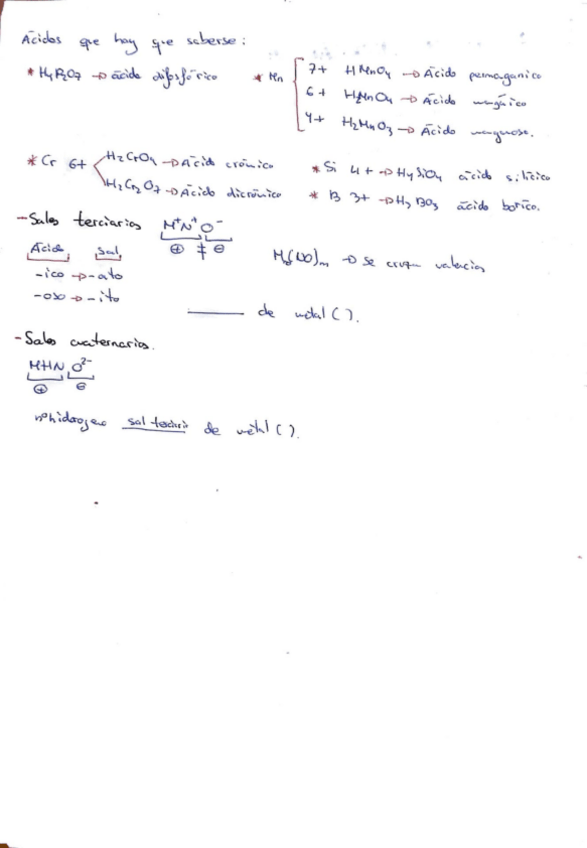 Ácidos que hay que saberse:
* H4P2O7 → ácido difosfórico
* Mn
7+ HMnO4 → Ácido permanganico
6+ H2MnO4 → Ácido mangánico
4+ H2MnO3 → Ácido manganoso.
* Cr 6+
H2CrO4 → Ácido crómico
H2Cr2O7 → Ácido dicrómico
* Si 4+ → H4SiO4 ácido silícico
* B 3+ → H3BO3 ácido borico.
- Sales terciarios M⁺N⁺O⁻
⊕ ‡ ⊖
Ácido Sal
-ico → -ato
-oso → -ito
→ se cruzan valencias
______ de metal ( ).
- Sales cuaternarios.
MHN O²⁻
⊕ ⊖
nº hidrogeno sal terciaria de metal ( ).